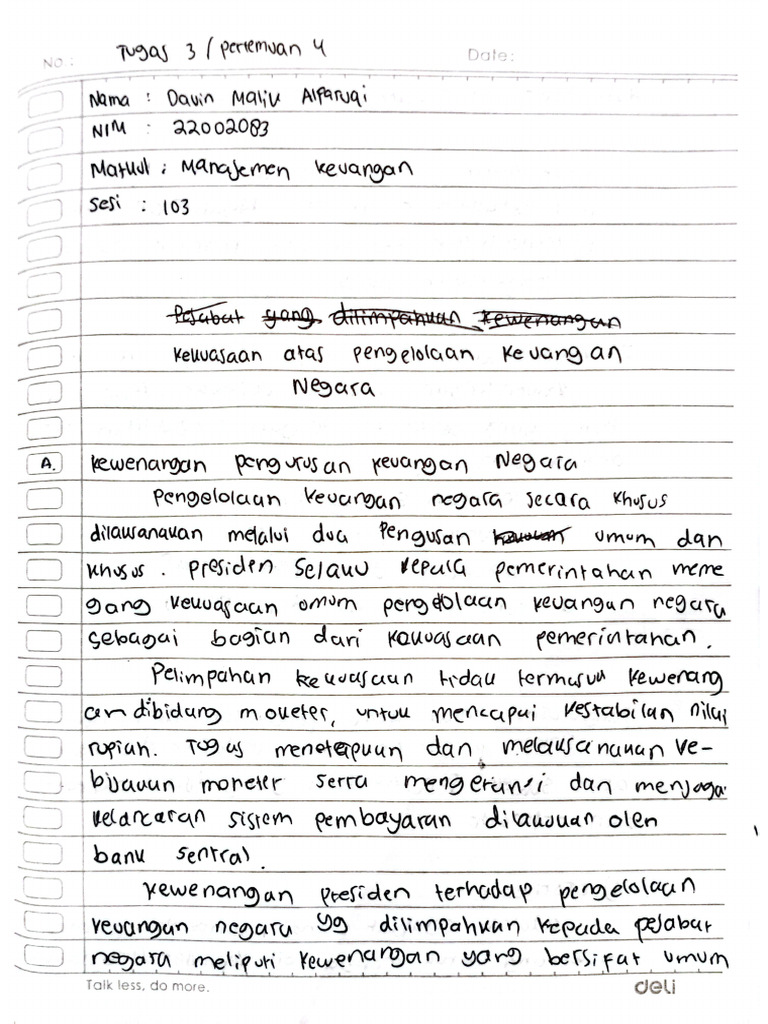 No.:
Tugas 3 / pertemuan 4
Date:
Nama : Davin Malik Alfaruqi
NIM : 22002083
Matkul : Manajemen Keuangan
Sesi : 103
Pejabat yang dilimpahkan kewenangan
Kekuasaan atas pengelolaan Keuangan
Negara
A. Kewenangan pengurusan keuangan Negara
Pengelolaan Keuangan negara secara khusus
dilaksanakan melalui dua Pengusan umum dan
khusus. Presiden Selaku kepala pemerintahan meme
gang kekuasaan umum pengelolaan keuangan negara
sebagai bagian dari kakuasaan pemerintahan.
Pelimpahan kekuasaan tidak termasuk kewenang
an dibidang moneter, untuk mencapai kestabilan nilai
rupiah. Tugas menetapkan dan melaksanakan ke-
bijakan moneter serta mengatur si dan menjaga
kelancaran sistem pembayaran dilakukan oleh
bank sentral.
Kewenangan presiden terhadap pengelolaan
keuangan negara yg dilimpahkan kepada pejabat
negara meliputi kewenangan yang bersifat umum
Talk less, do more.
deli